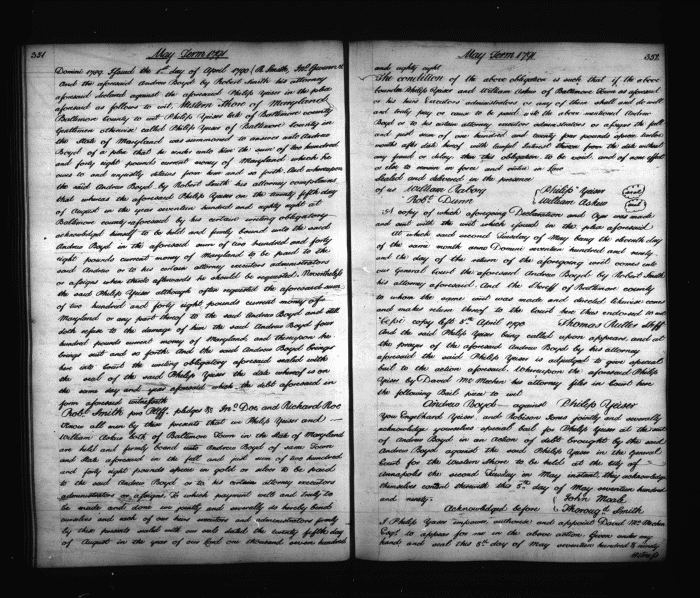 351
May Term 1791.
Domini 1789. Issued the 1st day of April 1790 (R. Smith, Jno. Gwinn Clk.
And the aforesaid Andrew Boyd by Robert Smith his attorney
aforesaid declared against the aforesaid Philip Yeiser in the plea
aforesaid as follows to wit, Western Shore of Maryland
Baltimore County to wit Philip Yeiser late of Baltimore county
Gentleman otherwise called Philip Yeiser of Baltimore County in
the State of Maryland was summoned to answer unto Andrew
Boyd of a plea that he render unto him the sum of two hundred
and forty eight pounds current money of Maryland which he
owes to and unjustly detains from him and so forth. And whereupon
the said Andrew Boyd by Robert Smith his attorney complains
that whereas the aforesaid Philip Yeiser on the twenty fifth day
of August in the year seventeen hundred and eighty eight at
Baltimore county aforesaid by his certain writing obligatory
acknowledged himself to be held and firmly bound unto the said
Andrew Boyd in the aforesaid sum of two hundred and forty
eight pounds current money of Maryland to be paid to the
said Andrew or to his certain attorney executors administrators
or assigns when thereto afterwards he should be requested. Nevertheless
the said Philip Yeiser although often requested the aforesaid sum
of two hundred and forty eight pounds current money of
Maryland or any part thereof to the said Andrew Boyd and still
doth refuse to the damage of him the said Andrew Boyd four
hundred pounds current money of Maryland and thereupon he
brings suit and so forth. And the said Andrew Boyd brings
here into Court the writing obligatory aforesaid sealed with
the seal of the said Philip Yeiser the date whereof is on
the same day and year aforesaid which the debt aforesaid in
form aforesaid witnesseth
Robt. Smith pro Plff. pledges &c Jno. Doe, and Richard Roe
Know all men by these presents that we Philip Yeiser and
William Askew both of Baltimore Town in the State of Maryland
are held and firmly bound unto Andrew Boyd of same Town
and State aforesaid in the full and just sum of two hundred
and forty eight pounds specie in gold or silver to be paid
to the said Andrew Boyd or to his certain attorney executors
administrators or assigns. To which payment well and truly to
be made and done we jointly and severally do hereby bind
ourselves and each of our heirs executors and administrators firmly
by these presents sealed with our seals dated the twenty fifth day
of August in the year of our Lord one thousand seven hundred
May Term 1791.
352.
and eighty eight
The condition of the above obligation is such that if the above
bounden Philip Yeiser and William Askew of Baltimore Town as aforesaid
or his heirs Executors administrators or any of them shall and do well
and truly pay or cause to be paid unto the above mentioned Andrew
Boyd or to his certain attorney executors administrators or assigns the full
and just sum of one hundred and twenty four pounds specie twelve
months after date hereof with lawful Interest thereon from the date without
any fraud or delay. then this obligation to be void, and of non effect
or else to remain in force and virtue in Law
Sealed and delivered in the presence
of us William Raborg Philip Yeiser seal
Robt. Dunn William Askew seal
A copy of which aforegoing Declaration and Oyer was made
and sent with the writ which issued in the plea aforesaid
At which said second Tuesday of May being the eleventh day
of the same month anno Domini seventeen hundred and ninety
and the day of the return of the aforegoing writ comes into
our General Court the aforesaid Andrew Boyd by Robert Smith
his attorney aforesaid. And the Sheriff of Baltimore county
to whom the same writ was made and directed likewise comes
and makes return thereof to the Court here thus endorsed to wit
"Cepi" copy left 5th April 1790 Thomas Rutter Shff
And the said Philip Yeiser being called upon appears, and at
the prayer of the aforesaid Andrew Boyd by his attorney
aforesaid the said Philip Yeiser is adjudged to give special
bail to the action aforesaid. Whereupon the aforesaid Philip
Yeiser by David Mc. Mechen his attorney files in Court here
the following Bail piece to wit
Andrew Boyd against Philip Yeiser
You Engelhard Yeiser, and Robison Jones jointly and severally
acknowledge yourselves special bail for Philip Yeiser at the suit
of Andrew Boyd in an action of debt brought by the said
Andrew Boyd against the said Philip Yeiser in the General
Court for the Western Shore to be held at the city of
Annapolis the second Tuesday in May instant, they acknowledge
themselves content therewith this 5th day of May seventeen hundred
and ninety. John Moale
Acknowledged before Thorough. Smith
I Philip Yeiser impower authorise and appoint David Mc. Mechen
Esqr. to appear for me in the above action. Given under my
hand and seal this 5th day of May seventeen hundred & ninety
Witness